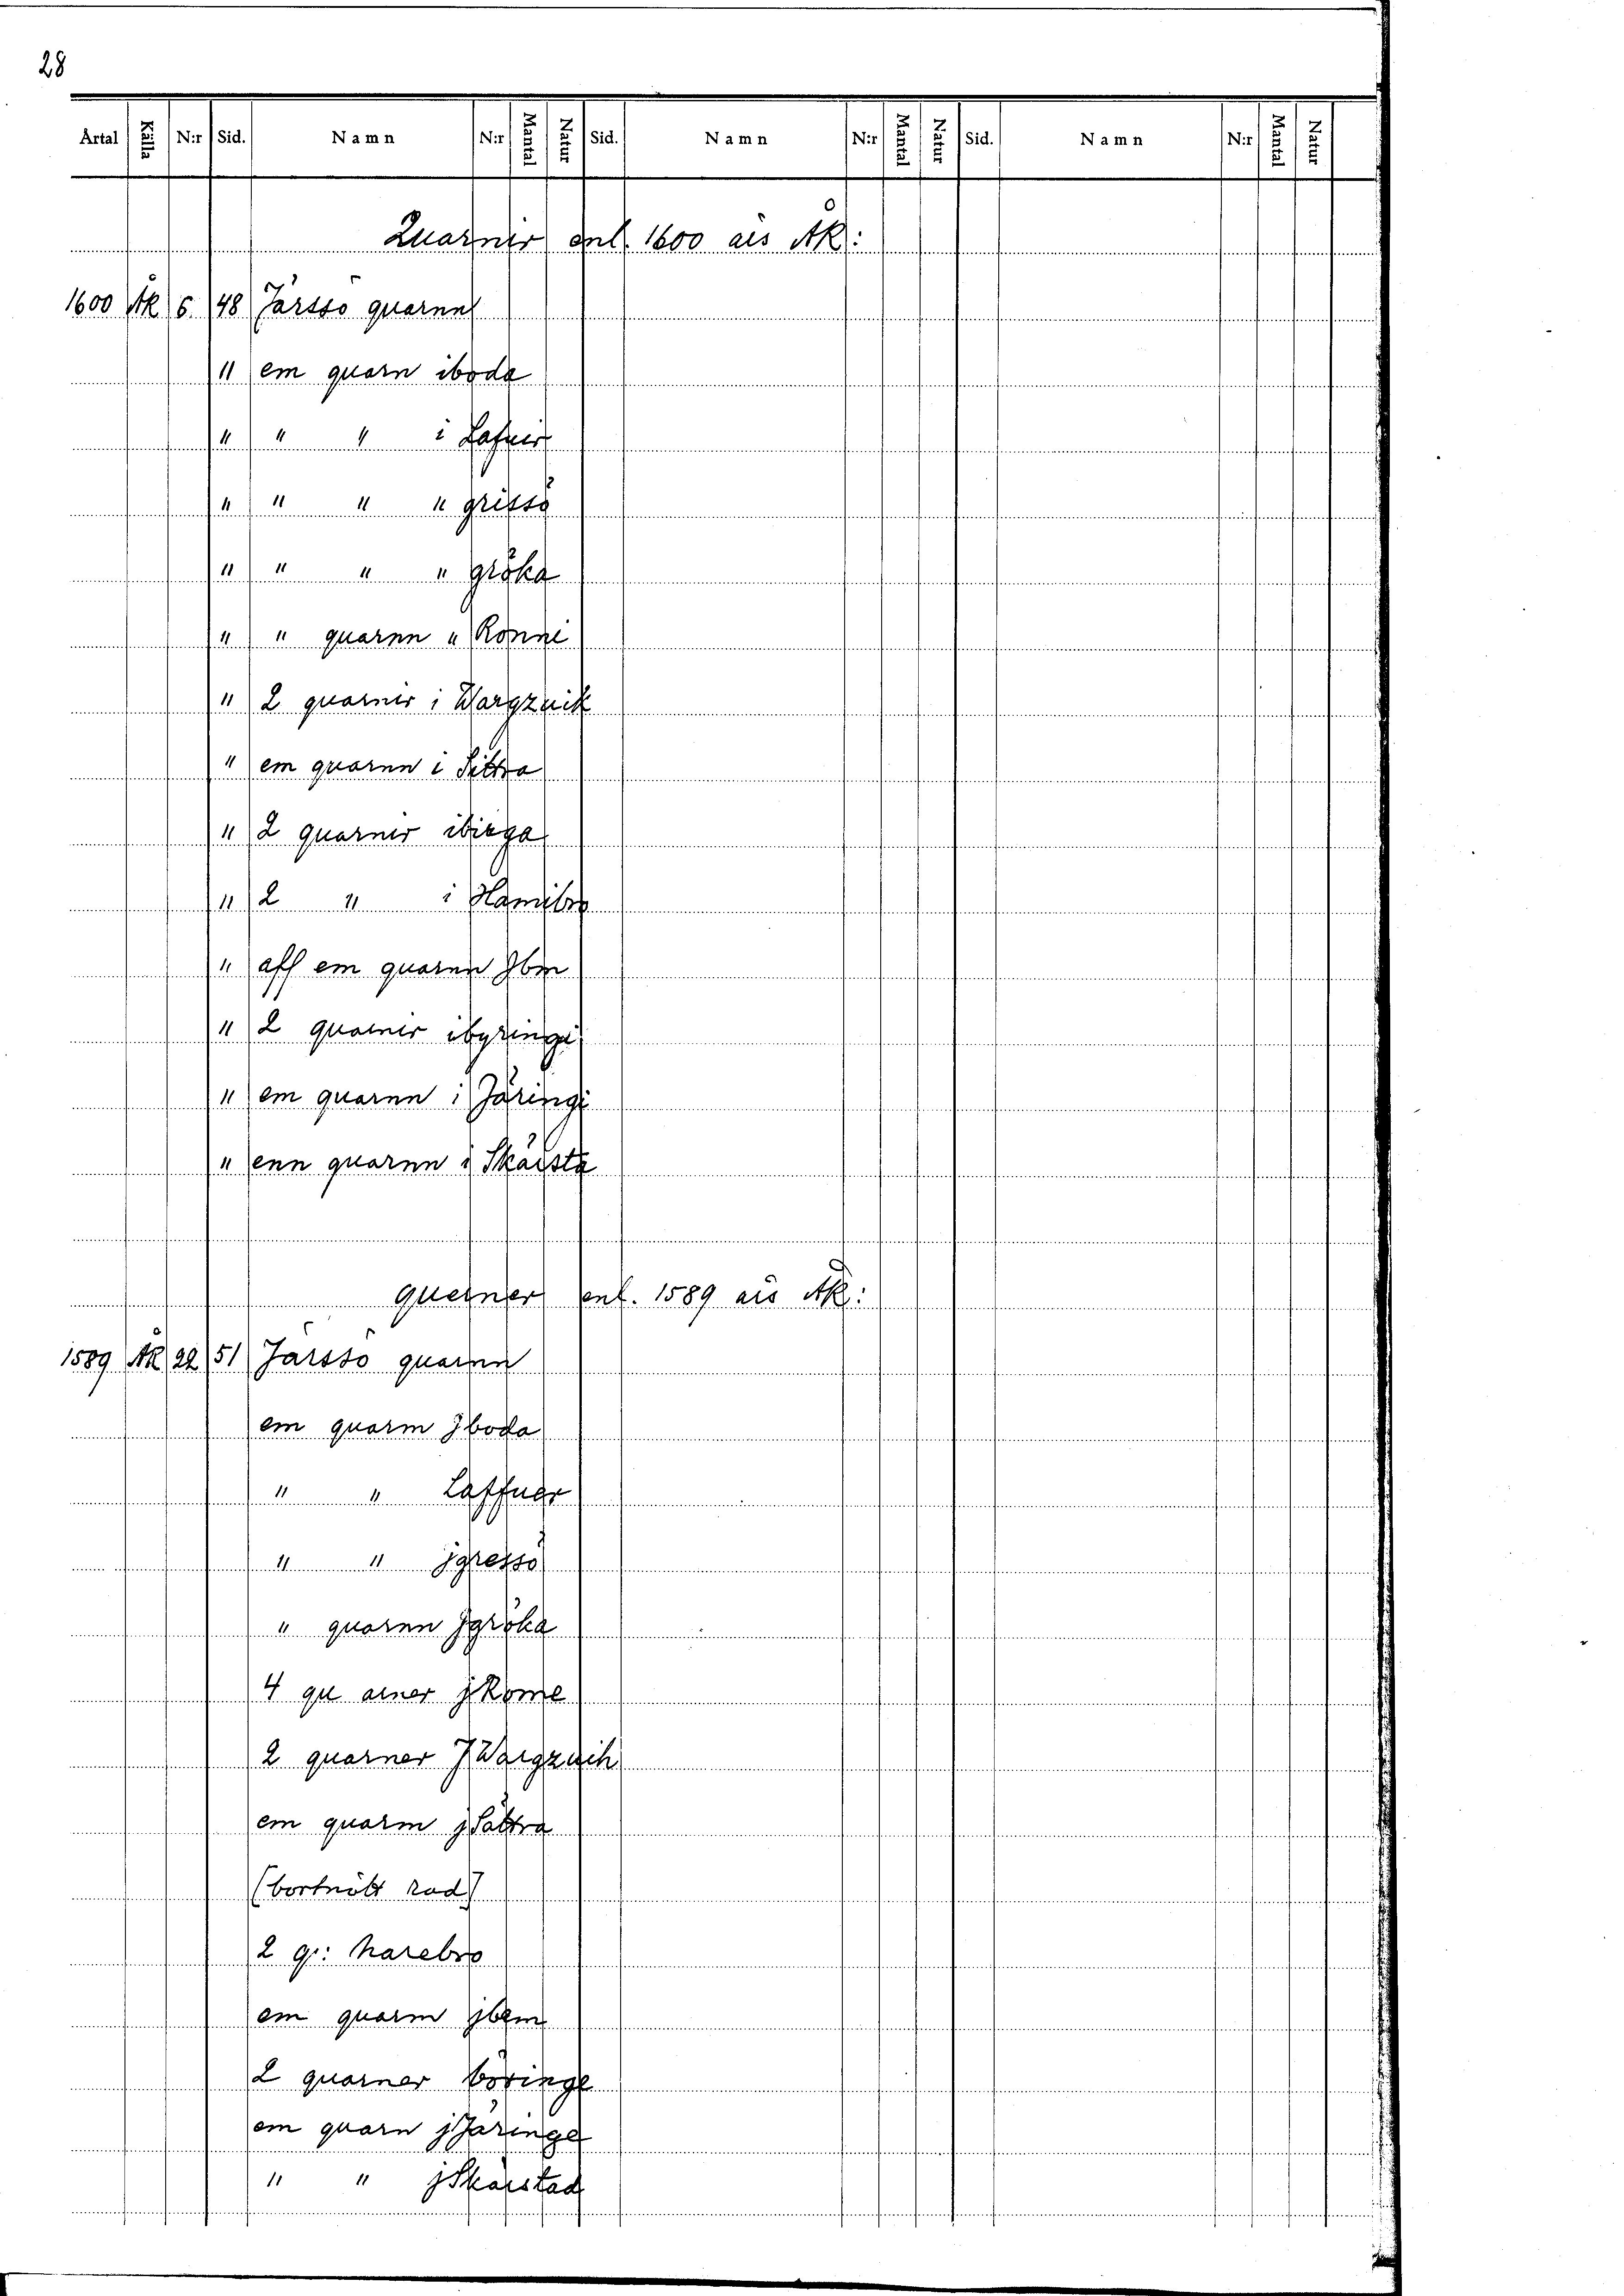 28
Årtal Källa N:r Sid. Namn N:r Mantal Natur Sid. Namn N:r Mantal Natur Sid. Namn N:r Mantal Natur
Quarner enl. 1600 års ÅK:
1600 ÅK 6. 48 Järssö quarnn
" em quarn iboda
" " " i Lafner
" " " " grissö
" " " " gröka
" " quarnn " Ronne
" 2 quarner i Wargzuik
" em quarnn i Sittra
" 2 quarner ibirga
" 2 " i Hamibro
" aff em quarnn Ibm
" 2 quarner ibyringi
" em quarnn i Järingi
" enn quarnn i Skärsta
querner enl. 1589 års ÅK:
1589 ÅK 22 51 Jarssö quarnn
em quarm Jboda
" " Laffner
" " jgressö
" quarnn Jgröka
4 qu arner j Rome
2 quarner J Wargzuich
em quarm j Sättra
(bortnött rad)
2 q: harebro
em quarm jbem
2 quarner böringe
em quarn j Järinge
" " j Skärstad